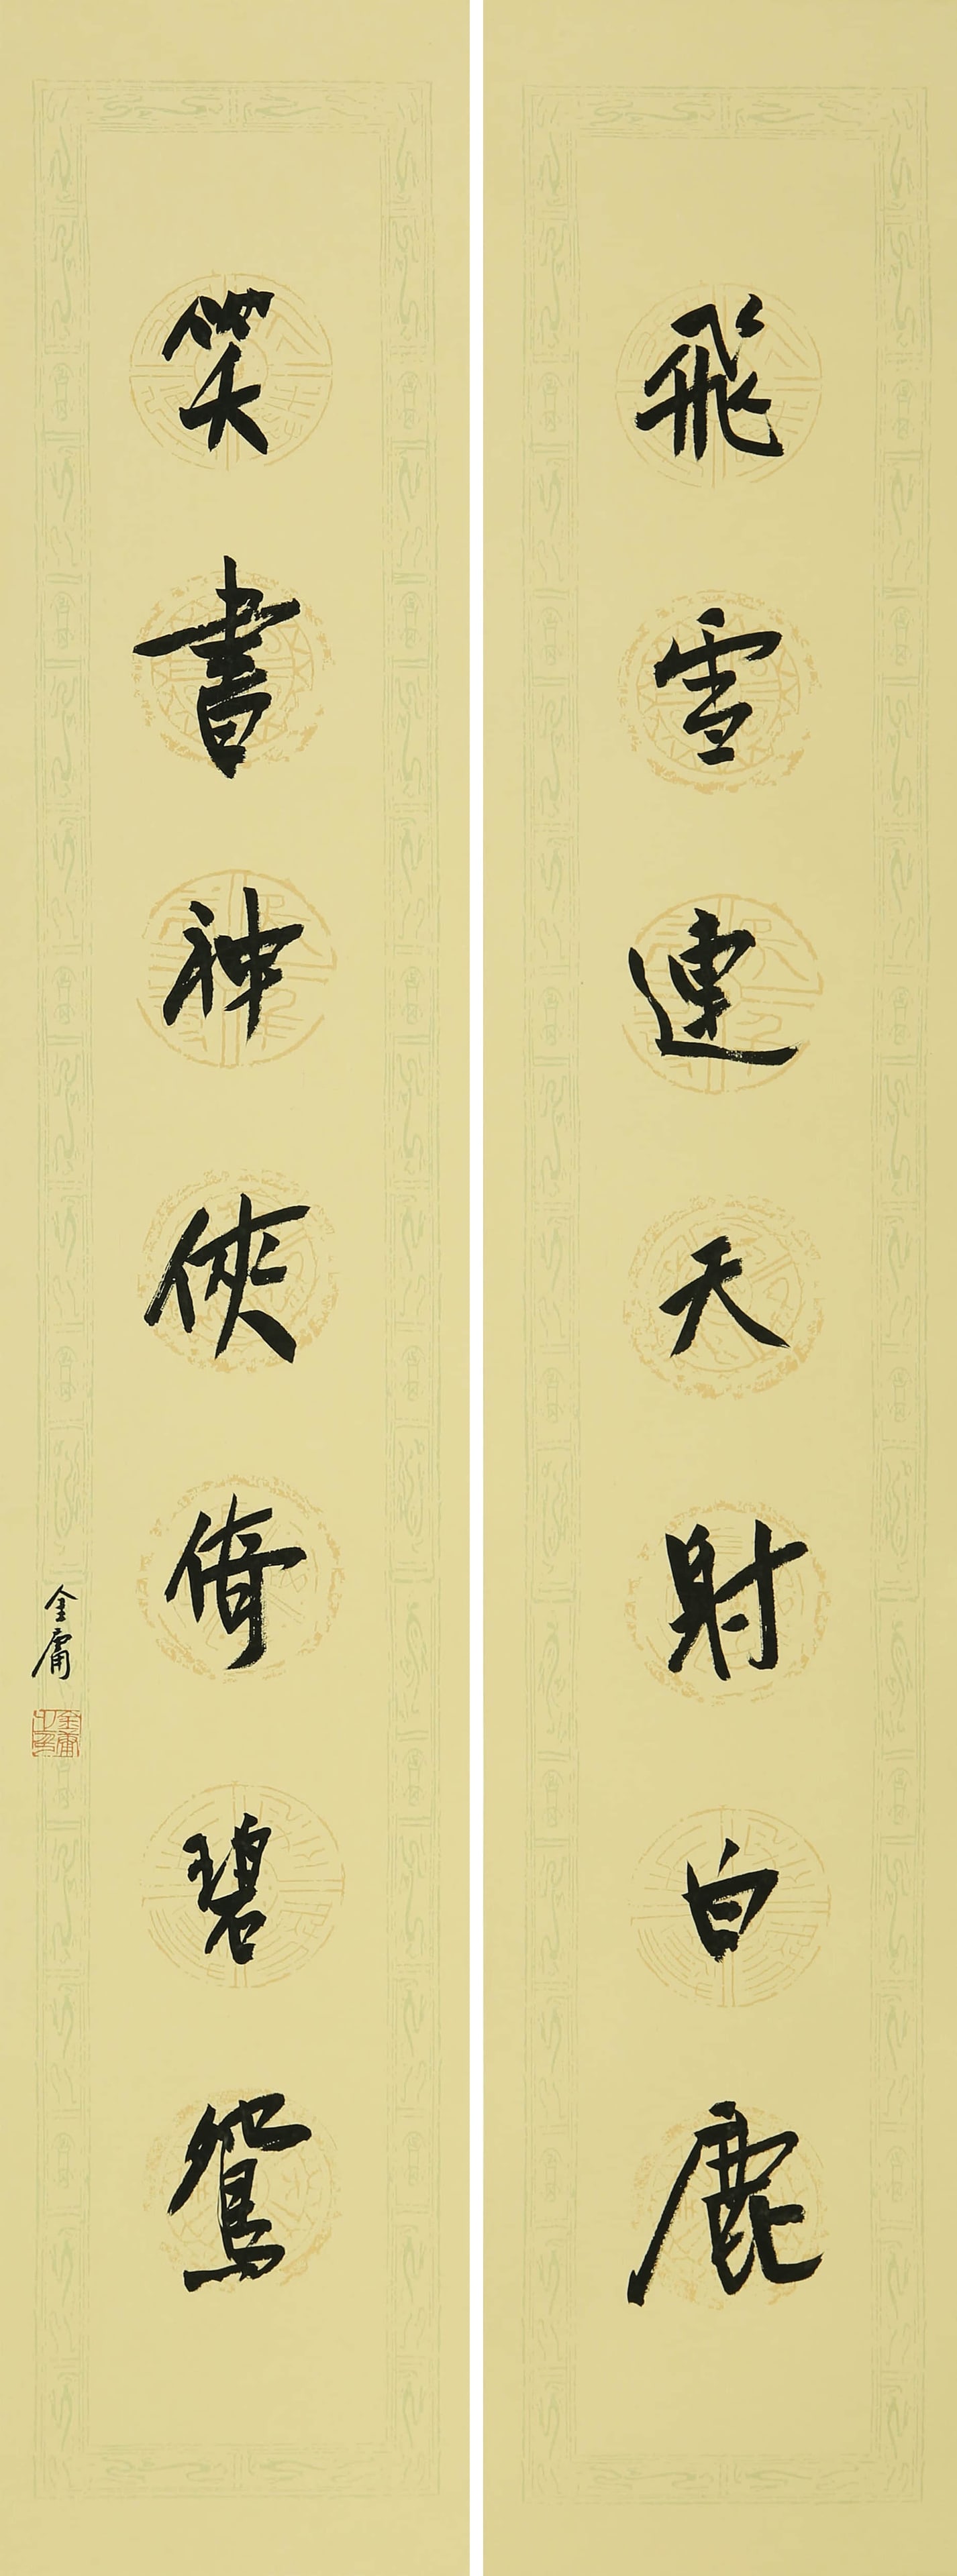 飛雪連天射白鹿
笑書神俠倚碧鴛
金庸
金庸之印